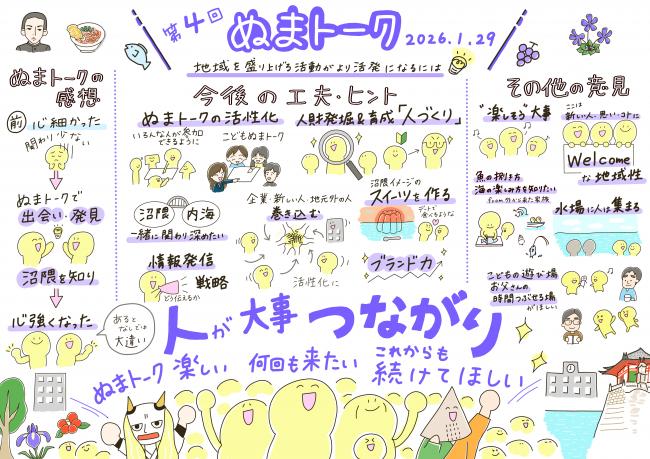 第4回 ぬまトーク 2026.1.29
地域を盛り上げる活動がより活発になるには
ぬまトークの
感想
前 心細かった
関わり少ない
ぬまトークで
出会い・発見
沼隈を知り
心強くなった
あると
なしでは
大違い
今後の工夫・ヒント
ぬまトークの活性化
いろんな人が参加
できるように
こどもぬまトーク
沼隈 内海
一緒に関わり深めたい
情報発信
戦略
どう伝えるか
人財発掘&育成「人づくり」
企業・新しい人・地元外の人
巻き込む
活性化に
沼隈イメージの
スイーツを作る
デートで
食べるような
ブランド力
その他の意見
"楽しそう"大事
ここは
新しい人・思い・コトに
Welcome
な地域性
魚の捌き方
海の楽しみ方を知りたい
from外から来た家族
水場に人は集まる
こどもの遊び場
お父さんの
時間つぶせる場
がほしい
人が大事 つながり
ぬまトーク楽しい 何回も来たい これからも
続けてほしい